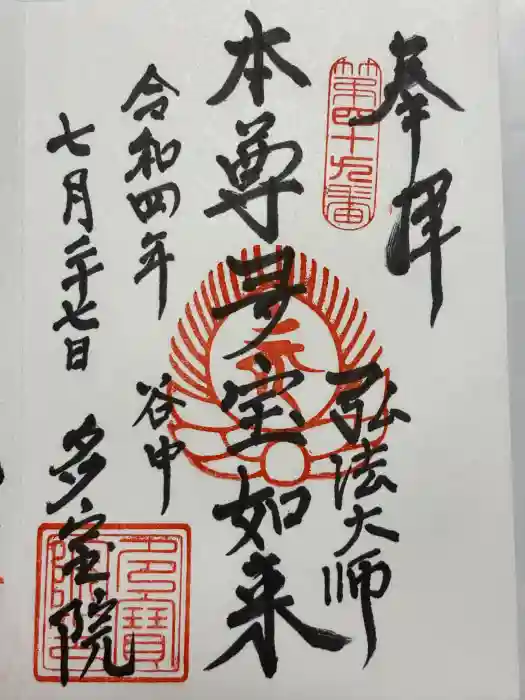 奉拝
第四十九番
弘法大師
本尊多宝如来
令和四年
七月二十七日
谷中
多宝院
多寶院印